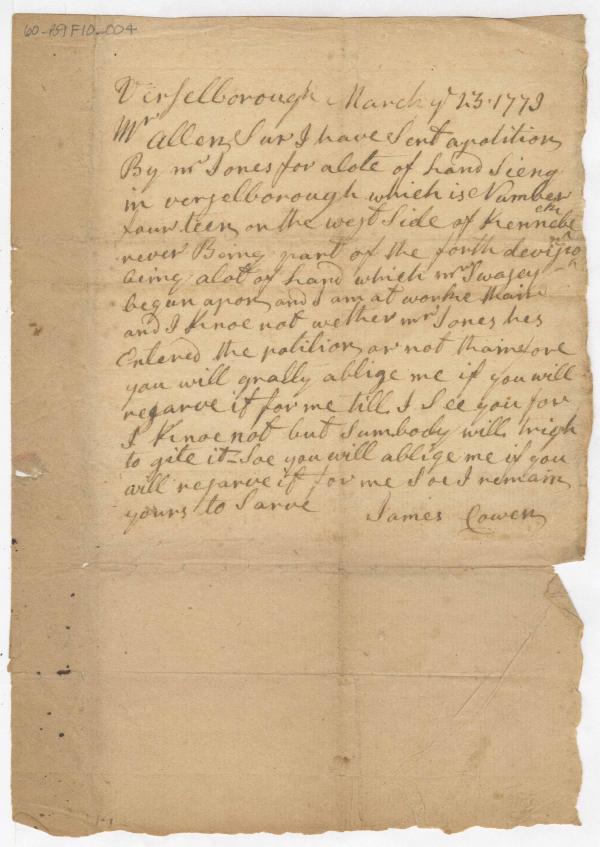 60-PP1F10-004
Verselborough March ye 23. 1773
Mr Allen Sur I have Sent apotition
By mr Jones for alote of land Sieng
in verselborough which is Number
fourteen on the west Side of Kennebeck
rever Being part of the forth devision
being alot of land which mr Swasey
begun apon and I am at worke thair
and I Knoe not wether mr Jones hes
Entered the potition or not thairefore
you will grally ablige me if you will
regarve it for me till I See you for
I Knoe not but Sumbody will trigh
to gite it - Soe you will ablige me if you
will regarve it for me Soe I remain
yours to Sarve James Cowen